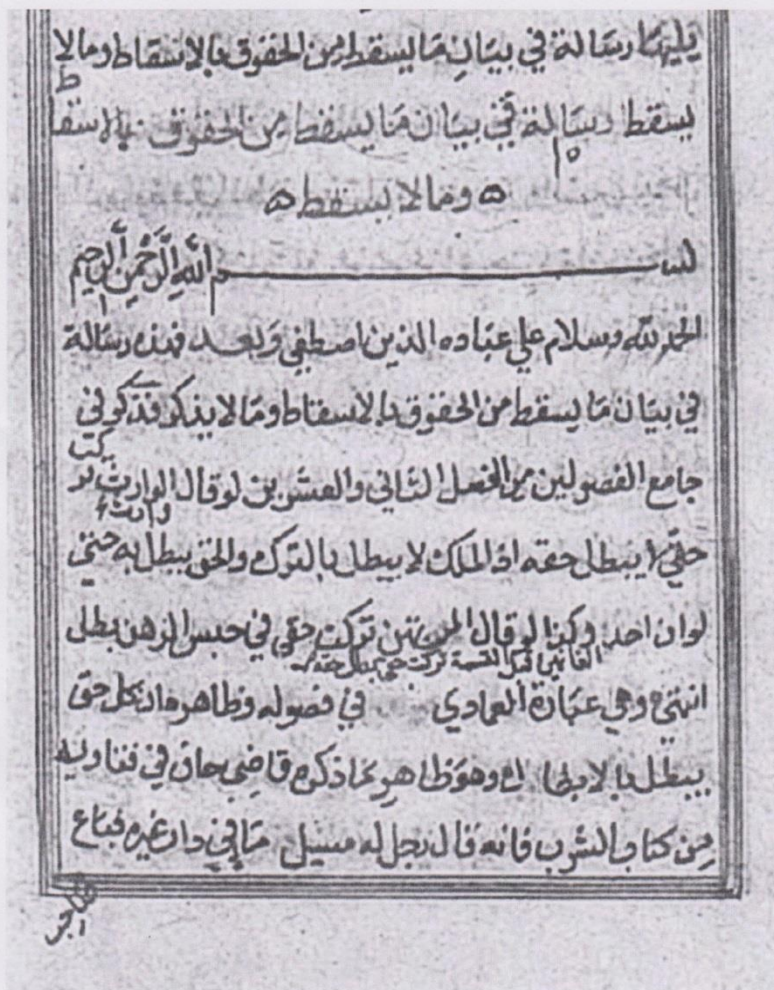 يليها رسالة في بيان ما يسقط من الحقوق بالاسقاط ومالا
يسقط رسالة في بيان ما يسقط من الحقوق بالاسقاط
ومالا يسقط
بسم الله الرحمن الرحيم
الحمد لله وسلام علي عباده الذين اصطفي وبعد فهذه رسالة
في بيان ما يسقط من الحقوق بالاسقاط ومالا يذكر فذكر في
جامع الفصولين من الفصل الثاني والعشرين لو قال الوارث تركت
حقي لا يبطل حقه اذ الملك لا يبطل بالترك والحق يبطل به حتي
لو ان احد الغانمين قبل القسمة تركت حقي بطل حقه وكذا لو قال المرتهن تركت حقي في حبس الرهن بطل
انتهي وهي عبارة العمادي في فصوله وظاهره ان كل حق
يبطل بالابطال وهو ظاهر ما ذكره قاضي خان في فتاويه
من كتاب الشرب فانه قال رجل له مسيل ما في دار غيره فباع